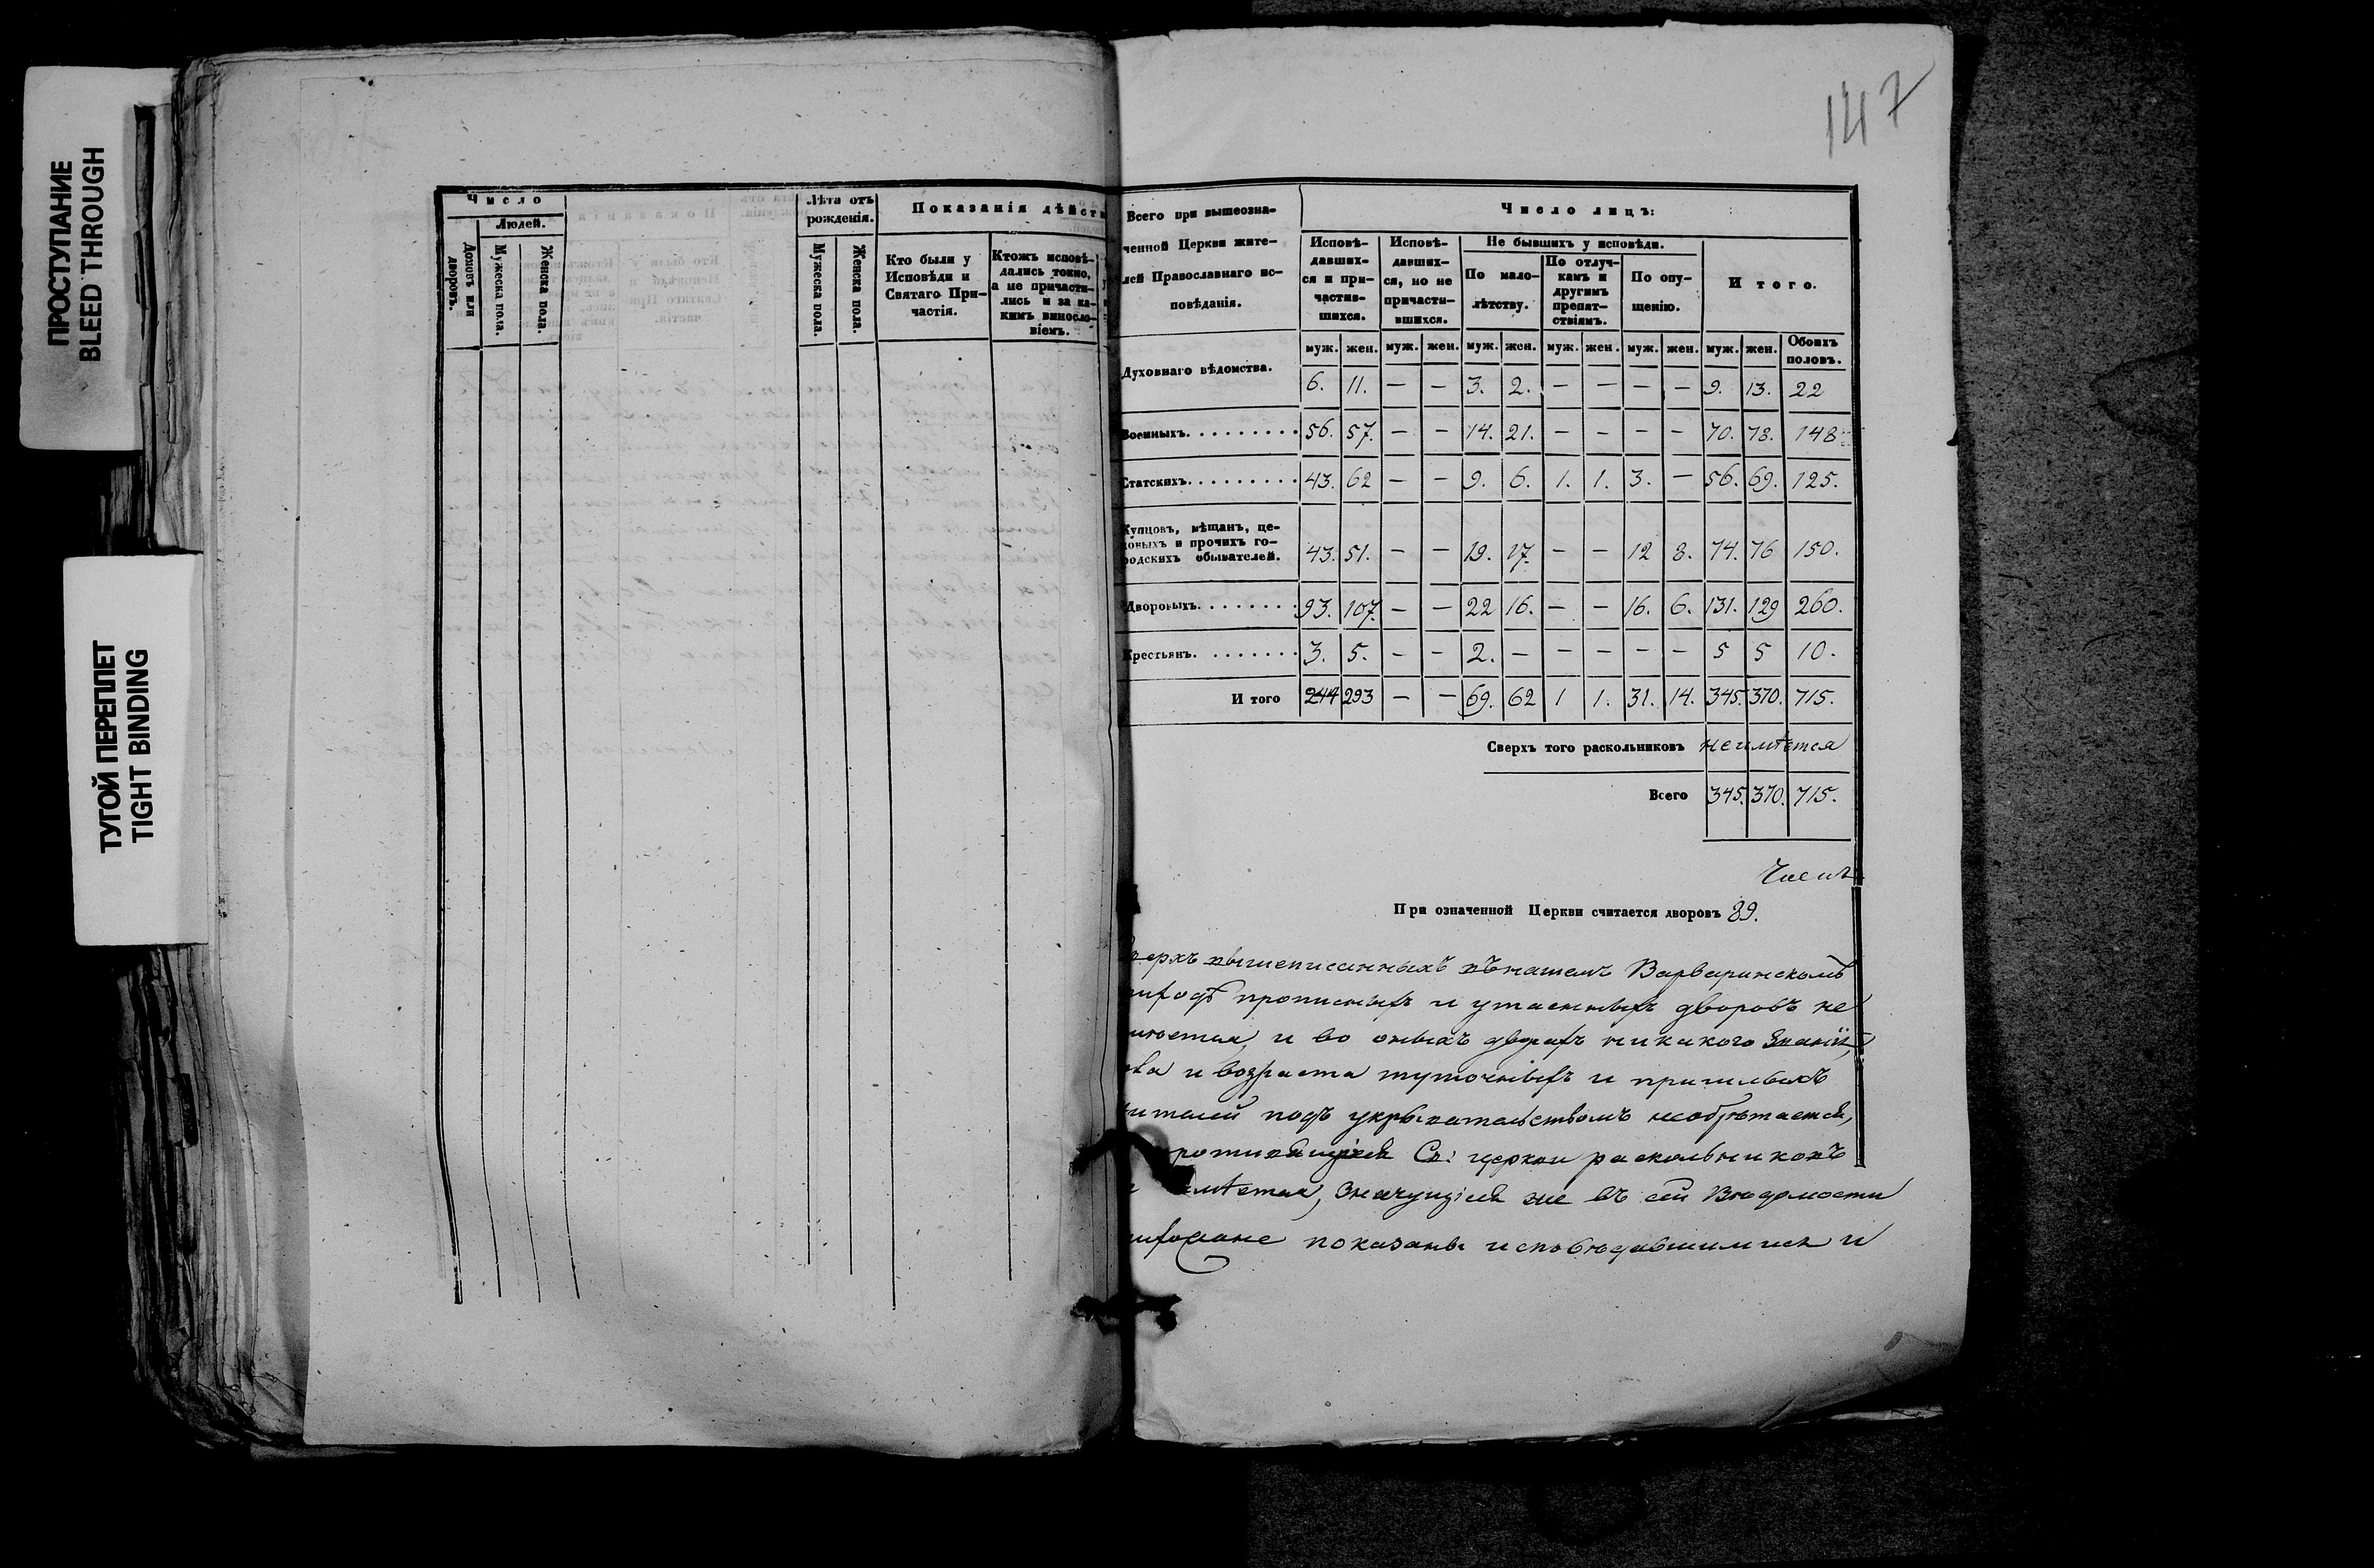 ПРОСТУПАНИЕ
BLEED THROUGH
ТУГОЙ ПЕРЕПЛЕТ
TIGHT BINDING
Число
Людей.
Домовъ или дворовъ.
Мужеска пола.
Женска пола.
Лѣта отъ рожденія.
Мужеска пола.
Женска пола.
Показанія дѣйств
Кто были у
Исповѣди и
Святаго При-
частія.
Ктожъ исповѣ-
дались токмо,
а не причасти-
лись и за ка-
кимъ винословіемъ.
147
Всего при вышеозна-
ченной Церкви жите-
лей Православнаго ис-
повѣданія.
Число лицъ:
Исповѣ-
давших-
ся и при-
частив-
шихся.
Исповѣ-
давших-
ся, но не
причасти-
вшихся.
Не бывшихъ у исповѣди.
По мало-
лѣтству.
По отлуч-
камъ и
другимъ
препят-
ствіямъ.
По опу-
щенію.
Итого.
муж. жен. муж. жен. муж. жен. муж. жен. муж. жен. муж. жен. Обоихъ половъ.
Духовнаго вѣдомства. 6. 11. — — 3. 2. — — — — 9. 13. 22
Военныхъ. 56. 57. — — 14. 21. — — — — 70. 78. 148
Статскихъ. 43. 62 — — 9. 6. 1. 1. 3. — 56. 69. 125.
Купцовъ, мѣщанъ, це-
ховыхъ и прочихъ го-
родскихъ обывателей. 43. 51. — — 19. 17. — — 12 8. 74. 76 150.
Дворовыхъ. 93. 107. — — 22 16. — — 16. 6. 131. 129 260.
Крестьянъ. 3. 5. — — 2. — — — — — 5 5 10.
Итого 244 293 — — 69. 62 1 1. 31. 14. 345. 370. 715.
Сверхъ того раскольниковъ неимѣется
Всего 345. 370. 715.
При означенной Церкви считается дворовъ 89.
верхъ вышеписанныхъ въ нашемъ Варваринскомъ
риходѣ прописныхъ и утаенныхъ дворовъ не
имѣется, и во оныхъ дворахъ никакого званія,
ола и возраста туточныхъ и пришлыхъ
жителей подъ укрывательствомъ необрѣтается,
ротивящихся Св: церкви раскольниковъ
имѣется, значущіеся же въ сей Вѣдомости
рихожане показаны исповѣдавшимися и